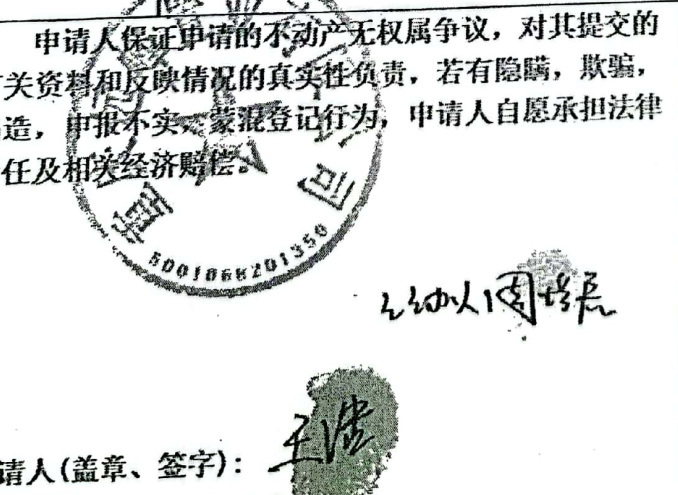 申请人保证申请的不动产无权属争议，对其提交的
关资料和反映情况的真实性负责，若有隐瞒，欺骗，
造，申报不实、蒙混登记行为，申请人自愿承担法律
任及相关经济赔偿。
司
经办人周
请人(盖章、签字)：王